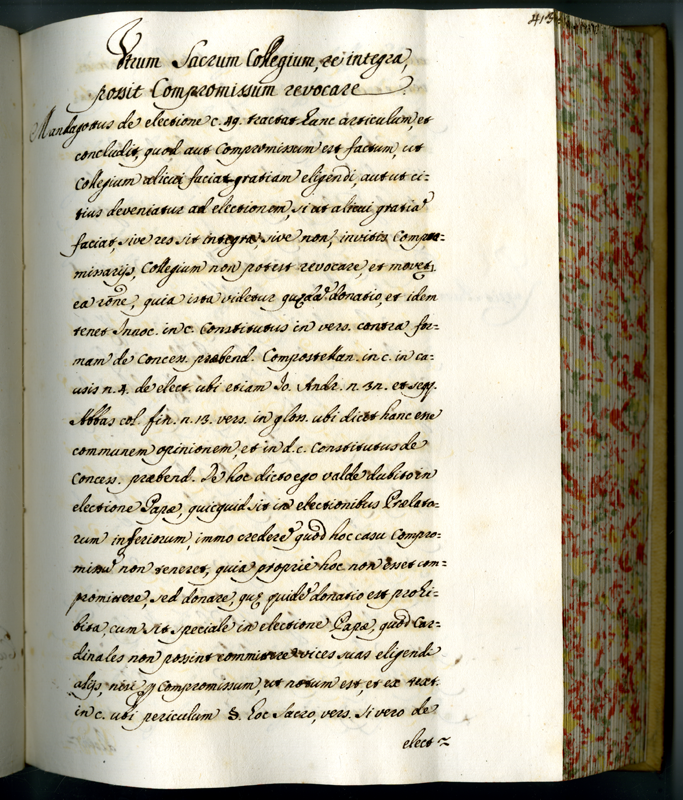 413
Utrum Sacrum Collegium, re integra,
possit Compromissum revocare
Mandagottus de electione c. 49. tractat hanc articulum, et
concludit, quod aut Compromissum est factum, ut
Collegium alicui faciat gratiam eligendi, aut ut ci-
tius deveniatur ad electionem, si ut alicui gratiã
faciat, sive res sit integra, sive non, invitis Compro=
missarijs, Collegium non potest revocare, et movet.
ea rõne, quia ista videtur quędã donatio, et idem
tenet Innoc. in c. Constitutus in vers. contra for-
mam de Concess. præbend. Compostellan. in c. in cau-
usis n. 4. de elect. ubi etiam Jo. Andr. n. 3n. et seqq.
Abbas col. fin. n. 13. vers. in glos. ubi dicit hanc esse
communem opinionem, et in d. c. Constitutus de
Concess. præbend. De hoc dicto ego valde dubito in
electione Papæ, quicquid sit in electionibus Prælato-
rum inferiorum, immo crederẽ quod hoc casu Compro=
missũ non teneret, quia proprie hoc non esset com=
promittere, sed donare, quę quidẽ donatio est prohi-
bita, cum sit speciale in electione Papæ, quod Car=
dinales non possint committere vices suas eligendi
alijs, nisi p Compromissum, ut notum est, et ex text.
in c. ubi periculum §. hoc Sacro, vers. Si vero de
elect